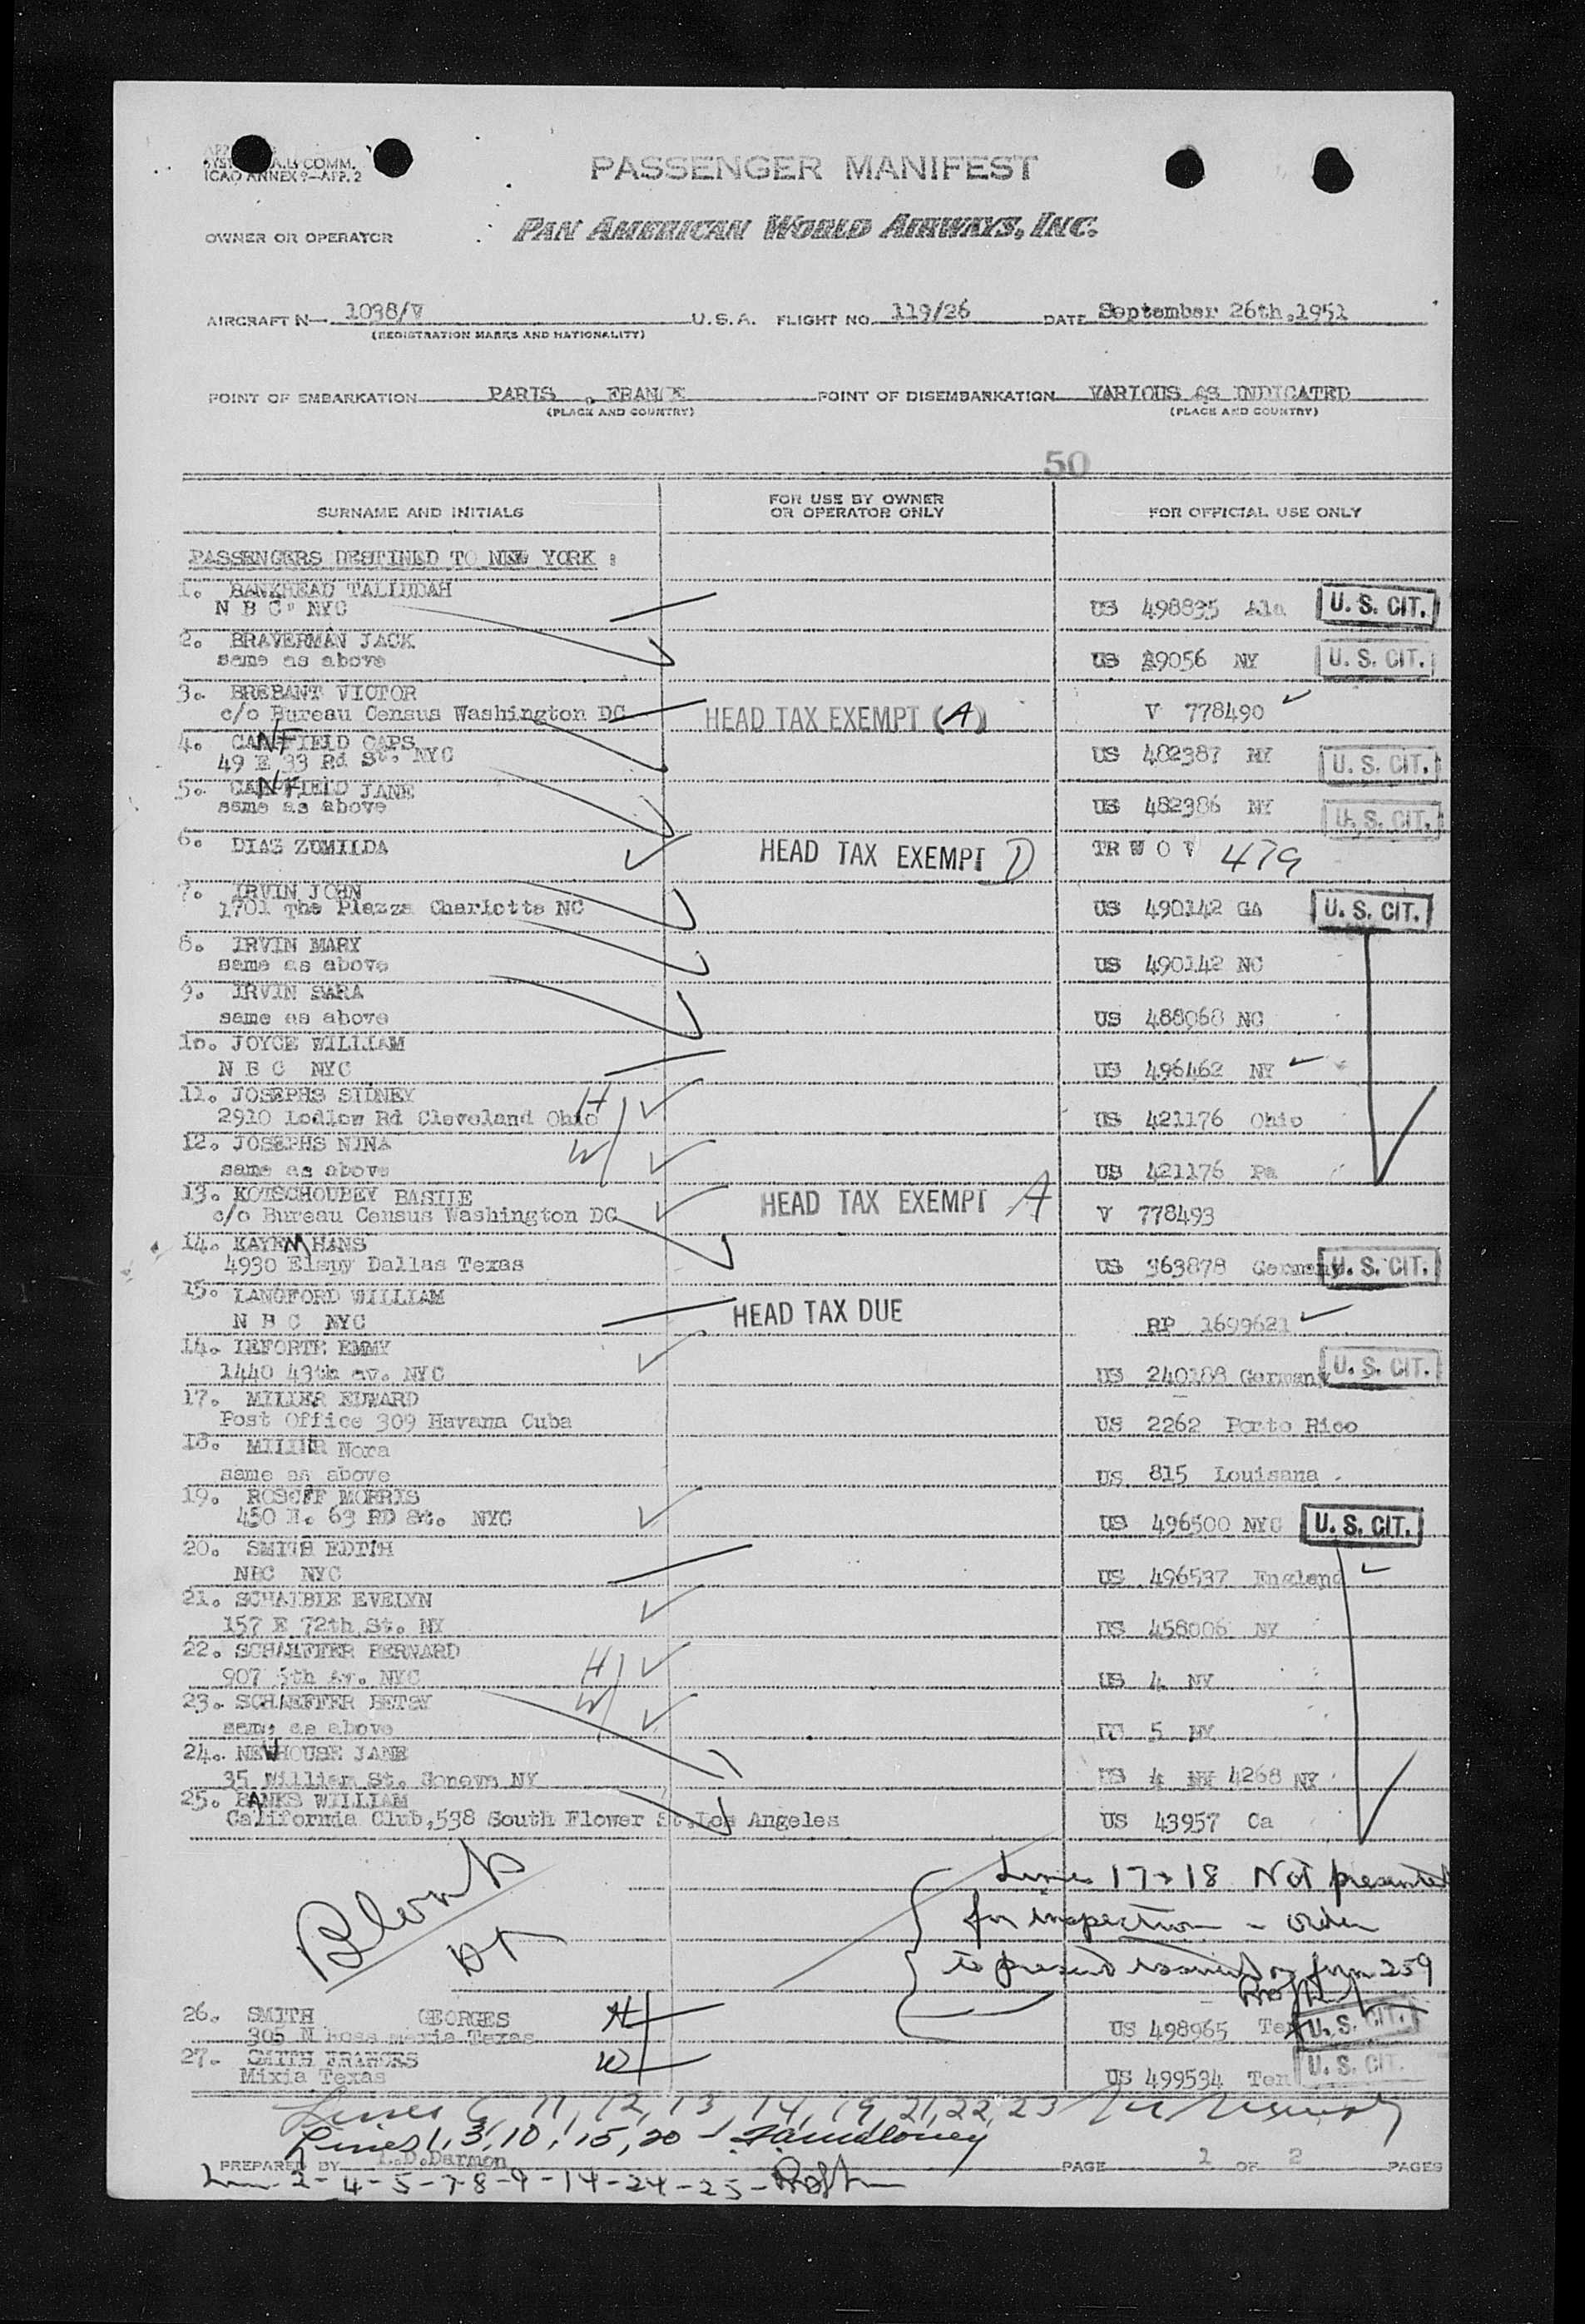 SYST A.L. COMM.
ICAO ANNEX 9—APP. 2
PASSENGER MANIFEST
OWNER OR OPERATOR
PAN AMERICAN WORLD AIRWAYS, INC.
AIRCRAFT N— 1038/V U.S.A. FLIGHT NO. 119/26 DATE September 26th,1951
(REGISTRATION MARKS AND NATIONALITY)
POINT OF EMBARKATION PARIS , FRANCE POINT OF DISEMBARKATION VARIOUS AS INDICATED
(PLACE AND COUNTRY) (PLACE AND COUNTRY)
50
SURNAME AND INITIALS FOR USE BY OWNER OR OPERATOR ONLY FOR OFFICIAL USE ONLY
PASSENGERS DESTINED TO NEW YORK :
1. BANKHEAD TALIUDAH
N B C NYC US 498835 Ala U. S. CIT.
2. BRAVERMAN JACK
same as above US 29056 NY U. S. CIT.
3. BREBANT VICTOR
c/o Bureau Census Washington DC HEAD TAX EXEMPT (A) V 778490
4. CANFIELD CAPS
49 E 33 Rd St. NYC US 482387 NY U. S. CIT.
5. CANFIELD JANE
same as above US 482386 NY U. S. CIT.
6. DIAS ZUMILDA HEAD TAX EXEMPT D TR W O V 479
7. IRVIN JOHN
1701 The Plazza Charlotte NC US 490142 GA U. S. CIT.
8. IRVIN MARY
same as above US 490142 NC
9. IRVIN SARA
same as above US 488068 NC
10. JOYCE WILLIAM
N B C NYC US 496462 NY
11. JOSEPHS SIDNEY H
2910 Lodlow Rd Cleveland Ohio US 421176 Ohio
12. JOSEPHS NINA W
same as above US 421176 Pa
13. KOTSCHOUBEY BASILE
c/o Bureau Census Washington DC HEAD TAX EXEMPT A V 778493
14. KAYEM HANS
4930 Elspy Dallas Texas US 363878 Germany U. S. CIT.
15. LANGFORD WILLIAM
N B C NYC HEAD TAX DUE RP 1699621
14. LEFORTE EMMY
1440 43th av. NYC US 240188 Germany U. S. CIT.
17. MILLER EDWARD
Post Office 309 Havana Cuba US 2262 Porto Rico
18. MILLER Nora
same as above US 815 Louisana
19. ROSOFF MORRIS
450 E. 63 RD St. NYC US 496500 NYC U. S. CIT.
20. SMITH EDITH
NBC NYC US 496537 England
21. SCHAIBLE EVELYN
157 E 72th St. NY US 458006 NY
22. SCHAEFFER BERNARD H
907 5th Av. NYC US 4 NY
23. SCHAEFFER BETSY W
same as above US 5 NY
24. NEWHOUSE JANE
35 William St. Geneva NY US 4 NY 4268 NY
25. BANKS WILLIAM
California Club,538 South Flower St.Los Angeles US 43957 Ca
Blank
Lines 17 & 18 Not presented
for inspection - order
to present issued on form 259
26. SMITH GEORGES H
305 N Ross Mexia Texas US 498965 Tex U. S. CIT.
27. SMITH FRANCES W
Mixia Texas US 499534 Ten U. S. CIT.
Lines 6, 11, 12, 13, 14, 19, 21, 22, 23
Lines 1, 3, 10, 15, 20
PREPARED BY L.D.Darmon PAGE 1 OF 2 PAGES
2-4-5-7-8-9-14-24-25-